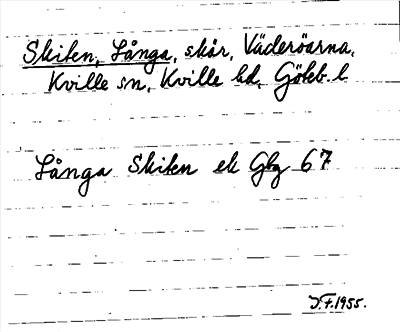 Skiten, Långa, skär, Väderöarna,
Kville sn, Kville hd, Göteb. l
Långa Skiten ek Gbg 67
D.F. 1955.